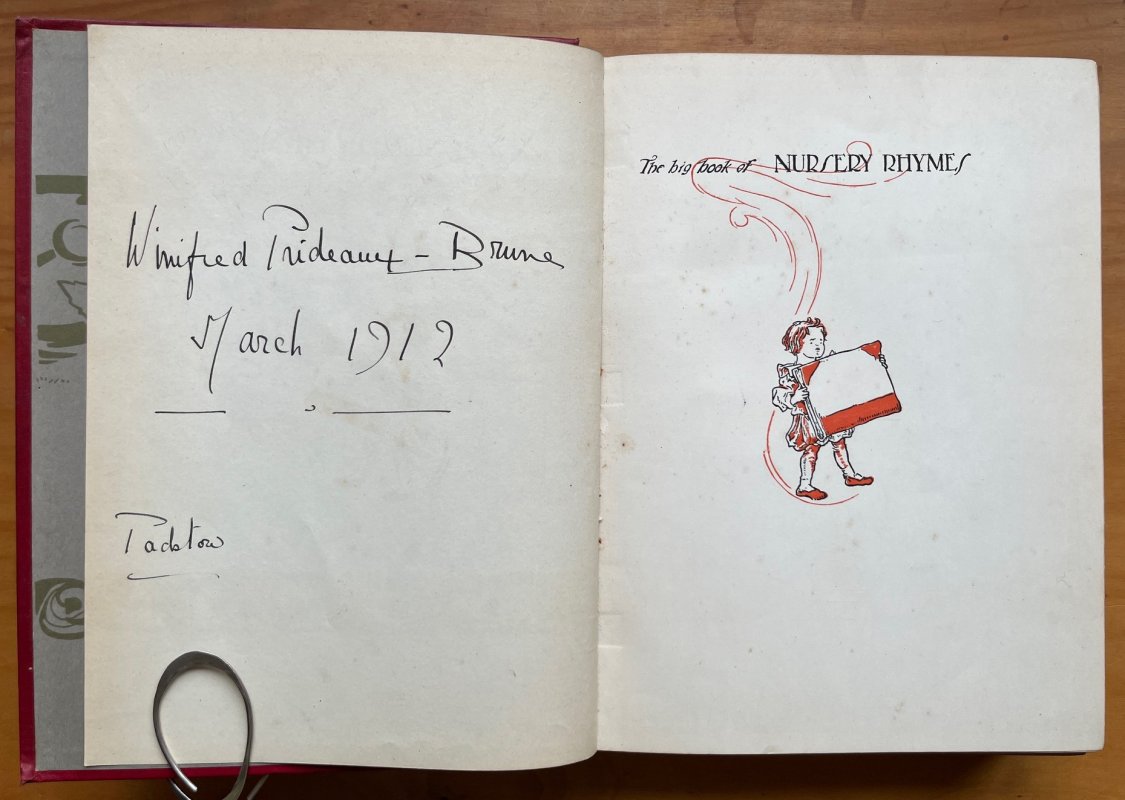 Winifred Prideaux-Brune
March 1912
Padstow
The big book of NURSERY RHYMES